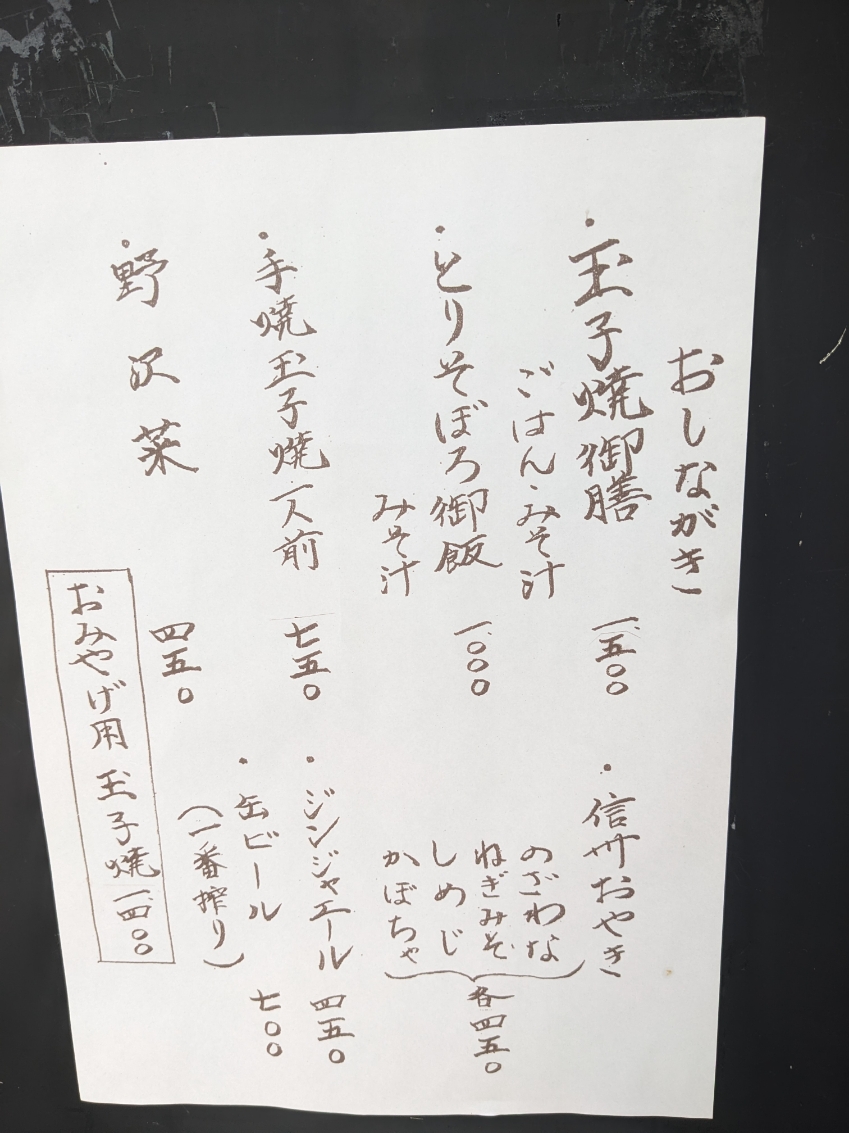 おしながき
・玉子焼御膳 一、五〇〇
ごはん・みそ汁
・とりそぼろ御飯 一、〇〇〇
みそ汁
・手焼玉子焼一人前 七五〇
・野沢菜 四五〇
・信州おやき
のざわな
ねぎみそ
しめじ
かぼちゃ
各四五〇
・ジンジャエール 四五〇
・缶ビール 七〇〇
(一番搾り)
おみやげ用 玉子焼 一、四〇〇